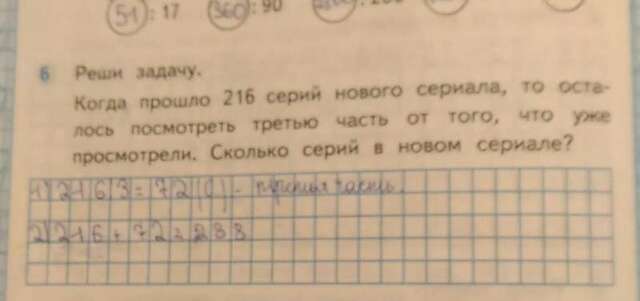 51 : 17 360 : 90
6 Реши задачу.
Когда прошло 216 серий нового сериала, то оста-
лось посмотреть третью часть от того, что уже
просмотрели. Сколько серий в новом сериале?
1) 216:3=72( )- третья часть.
2) 216+72=288